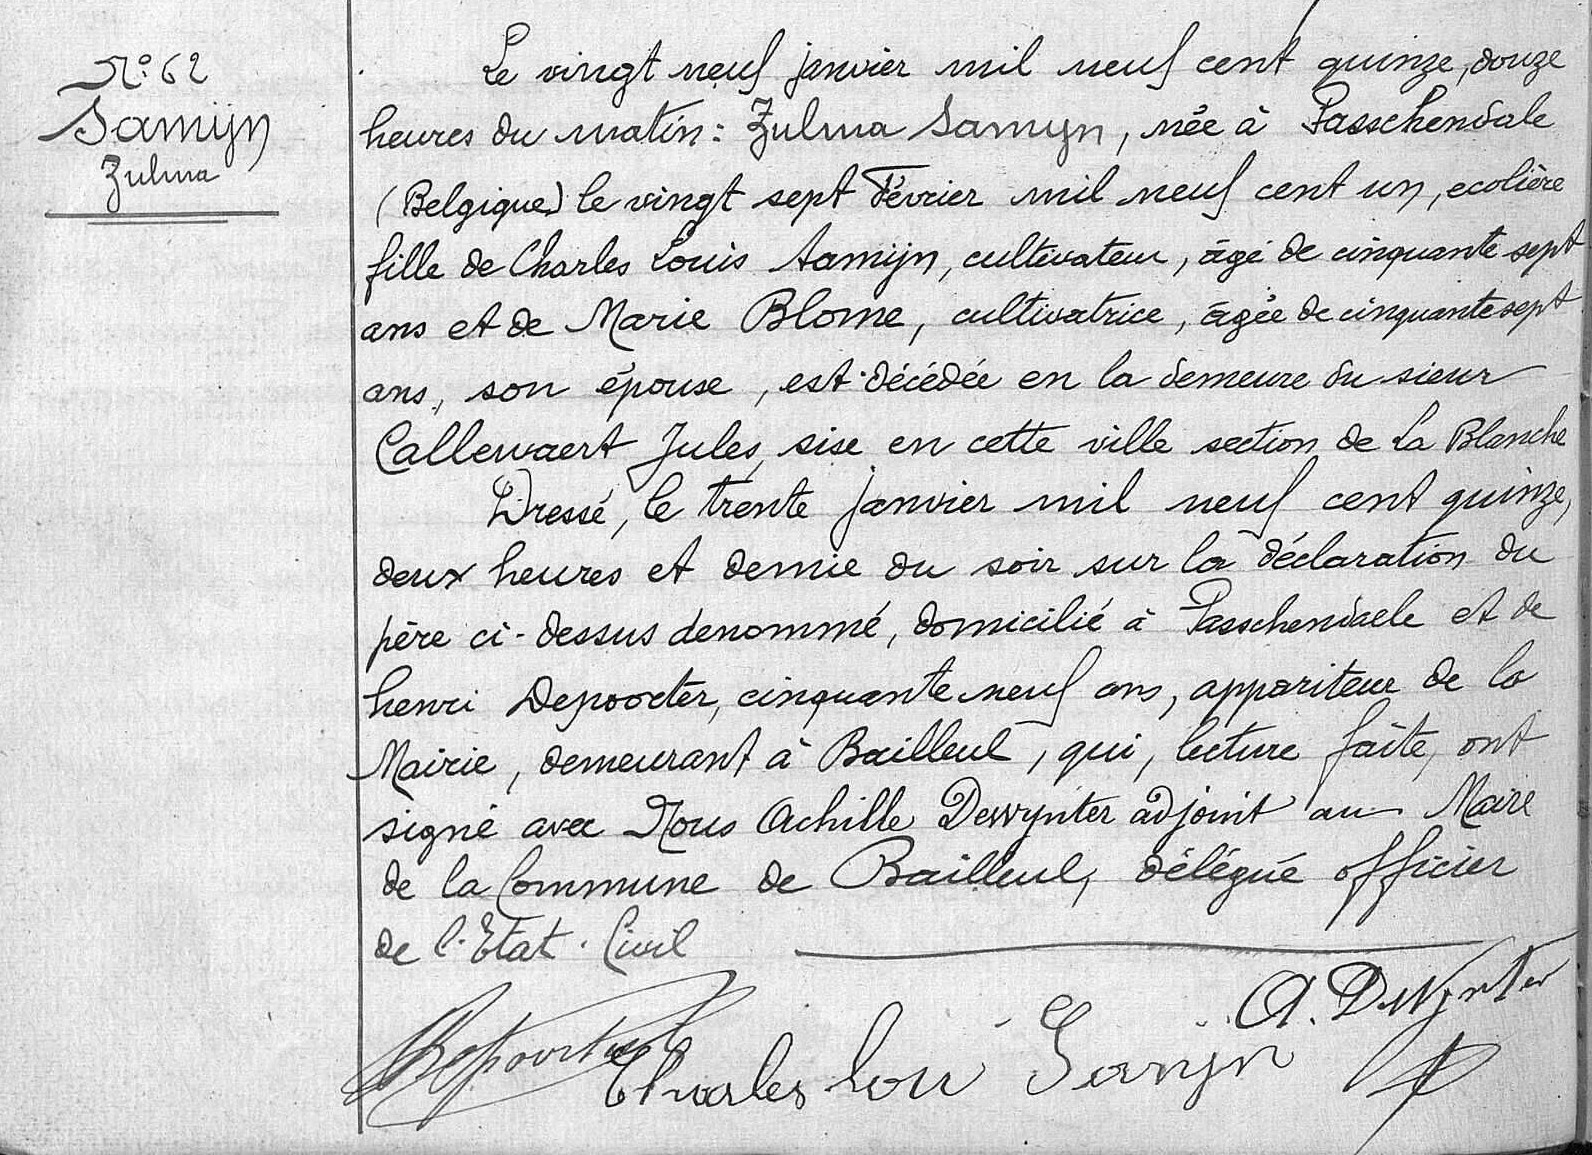 N° 62
Samijn
Zulma
Le vingt neuf janvier mil neuf cent quinze, douze
heures du matin : Zulma Samyn, née à Passchendale
(Belgique) le vingt sept Février mil neuf cent un, ecolière
fille de Charles Louis Samijn, cultivateur, âgé de cinquante sept
ans et de Marie Blome, cultivatrice, âgée de cinquante sept
ans, son épouse, est décédée en la demeure du sieur
Callewaert Jules, sise en cette ville section de La Blanche
Dressé, le trente janvier mil neuf cent quinze,
deux heures et demie du soir sur la déclaration du
père ci-dessus denommé, domicilié à Passchendaele et de
henri Depoorter, cinquante neuf ans, appariteur de la
Mairie, demeurant à Bailleul, qui, lecture faite, ont
signé avec Nous Achille Dewynter adjoint au Maire
de la Commune de Bailleul, délégué officier
de l'Etat-Civil
A. Dewynter
HDepoorter Charles Loui Samyn